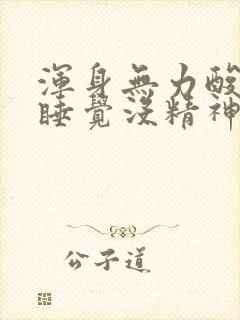 渾身無力酸
睡覺沒精神
公子道